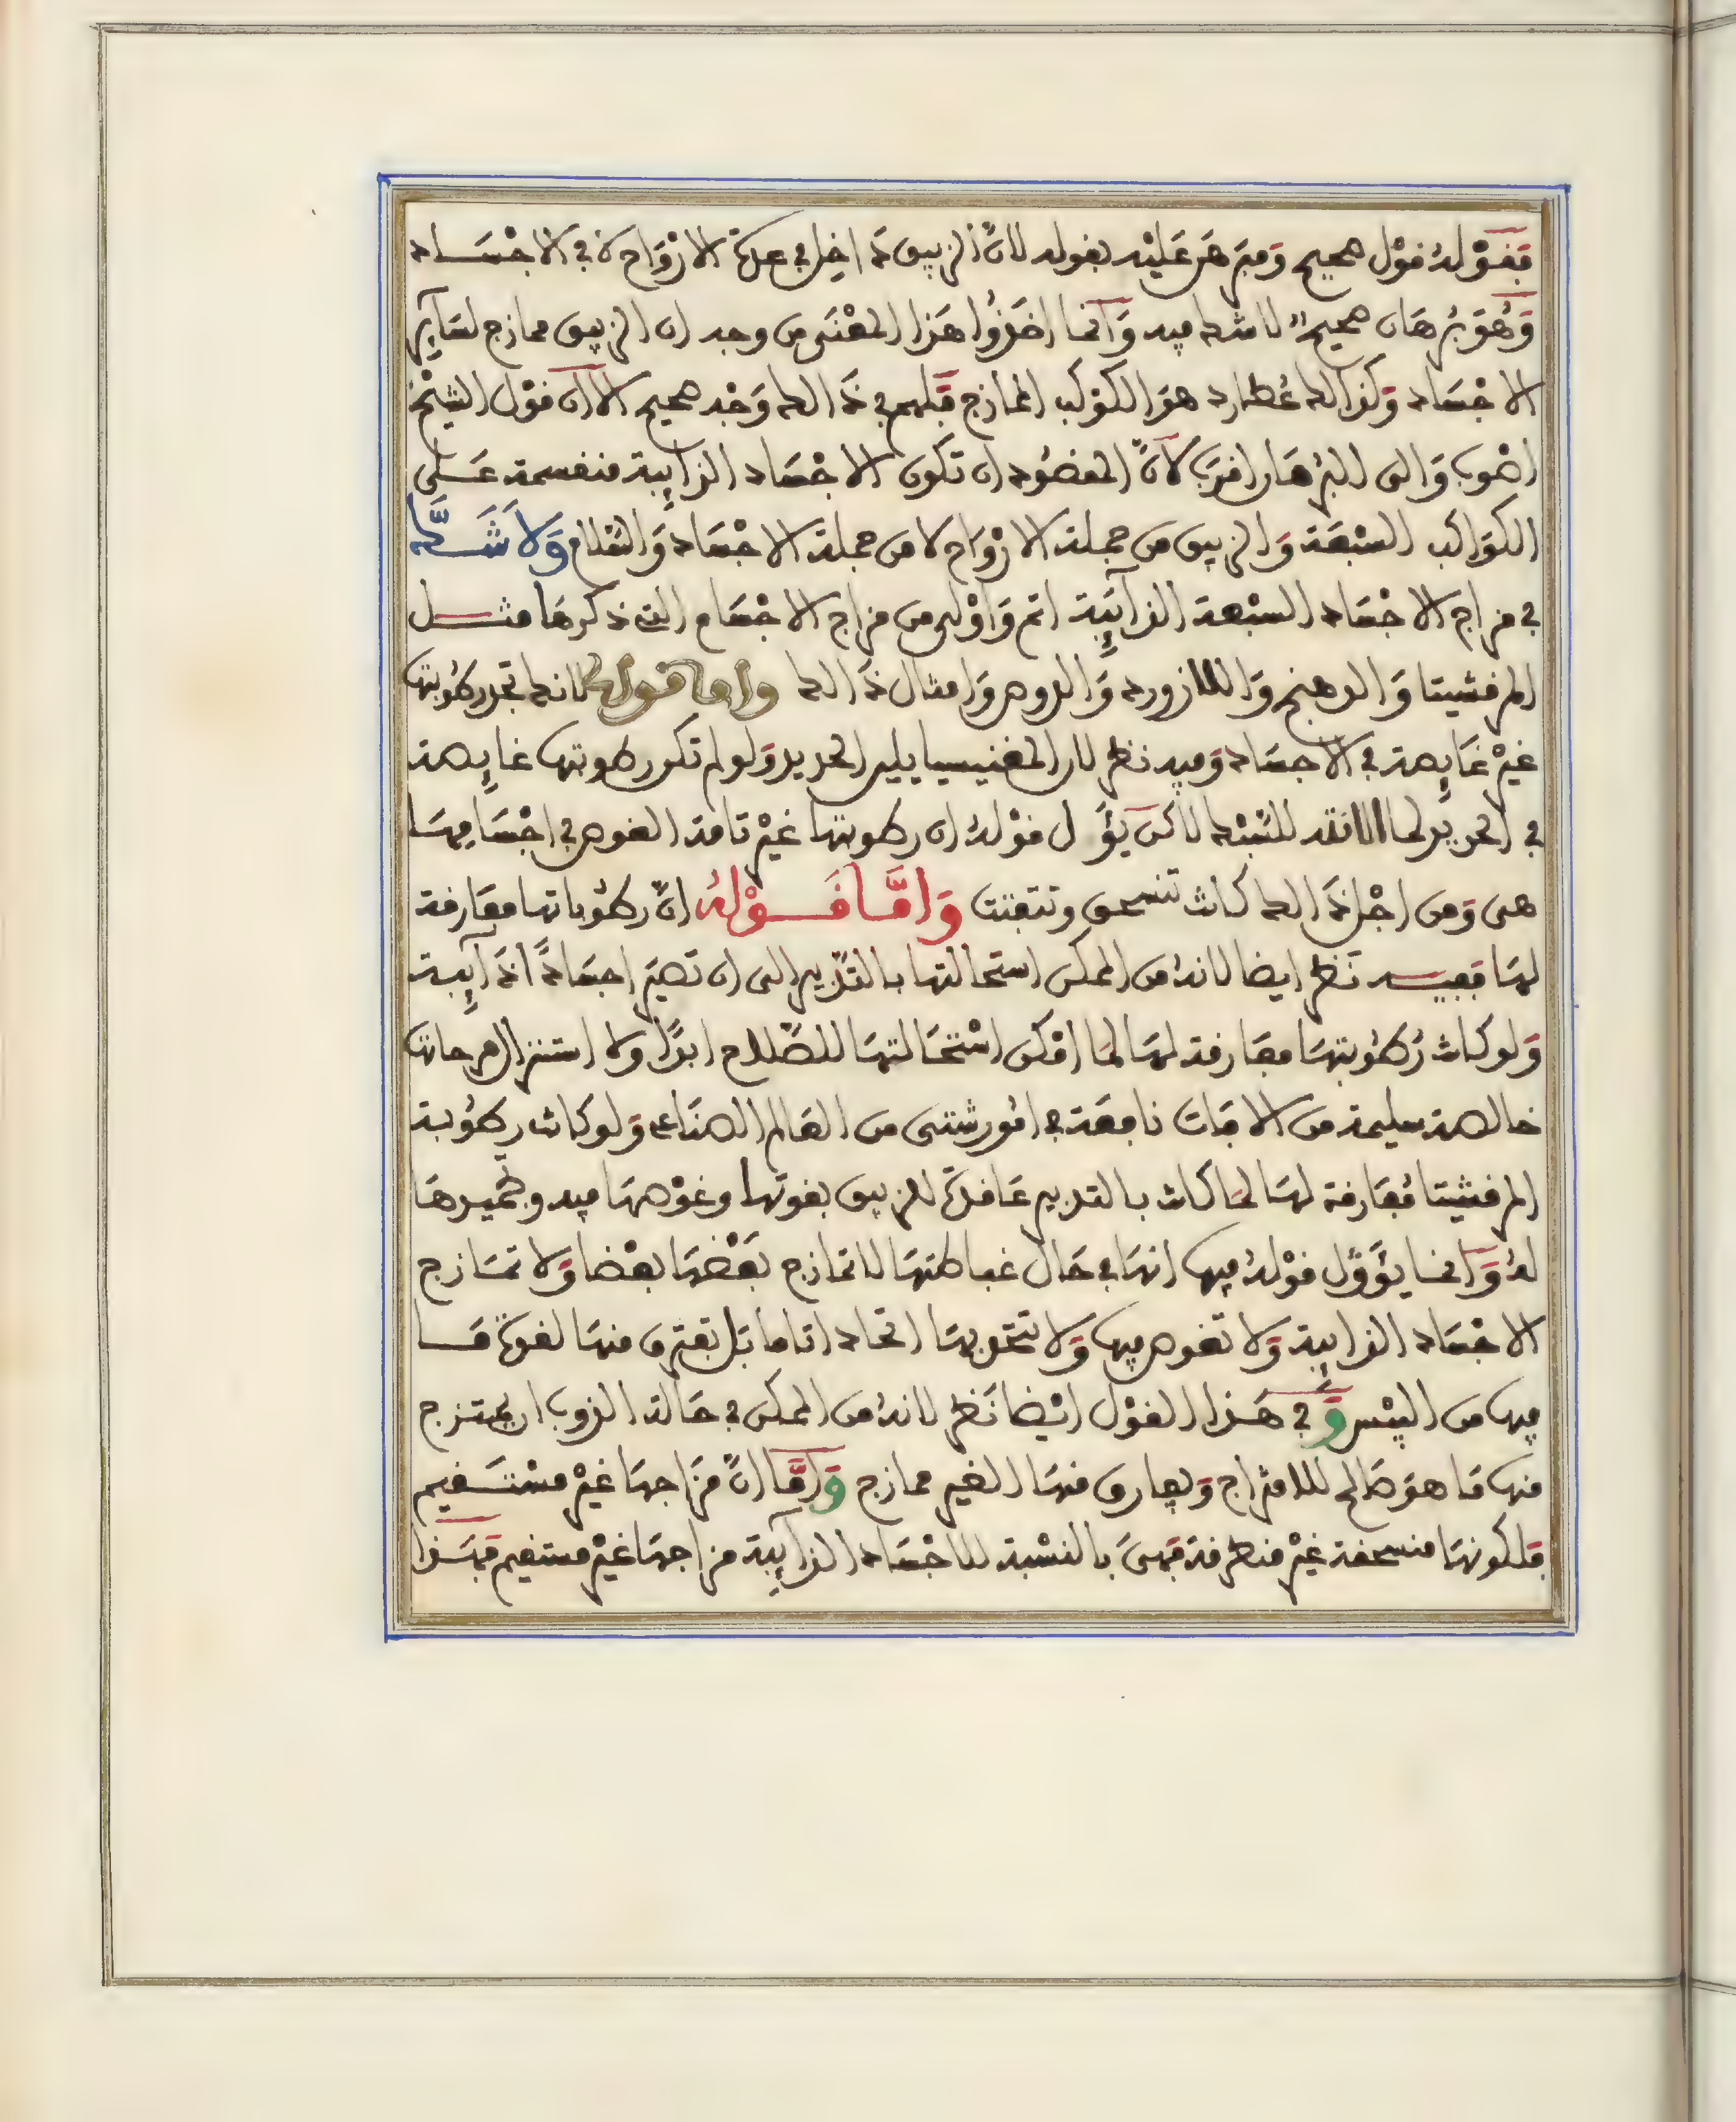 فَقَوْلهُ قوْل صحيح وَمبَرهَن عَليْه بقوله لانّ الزيبق دَاخِل في عدة الارْوَاح لا في الاجْسَاد
وَهُوَ بُرهَان صحيح لا شك فيه وَانما اخذُوا هَذا المعْنَى من وجه ان الزيبق ممازج لسَاير
الاجْسَاد وَكذالك عُطارد هوَ الكوْكب الممازج فَلهم في ذَالك وَجْه صحيح الا ان قوْل الشيْخ
اصْوب وَالى البُرهَان اقرب لانّ المقصُود ان تكون الاجْسَاد الذايبة منقسمة عَلى
الكوَاكب السبْعَة وَالزيبق من جملة الارْوَاح لا من جملة الاجْسَاد وَالسّلام وَلاَ شَـكَّ
في مزاج الاجْسَاد السبْعة الذايِبَة اتم وَاوْلى من مزاج الاجْسَام التي ذكرهَا مثـل
المرقشيتا وَالدهنج وَاللازورد وَالدوص وَامثال ذَالك واما قوله لانك تجد رطُوبتها
غيْر غَايصة في الاجسَاد وَفيه نظر لان المغنيسيا يلين الحديد وَلو لم تكن رطوبتها غايصة
في الحديد لما الانته للسّبْك لاكن يؤَول قوْلهُ ان رطوبتها غيْر تامة الغوص في اجْسَامِهَا
هى وَمن اجْل ذَالك كانت تنسحق وتتفتت وَامَّـا قَـوْلهُ انّ رطُوباتها مفَارقة
لهَا فَفيـه نَظر ايضا لانهُ من الممكن استحالتها بالتدْبير الى ان تَصيَر اجسَادًا ذَايِبة
وَلو كانت رُطُوبتهَا مفَارقة لهَا لمَا امْكن اسْتحَالتهَا للصّلاح ابدًا ولا استنزال مرجانها
خالصة سليمة من الافات نافِعَة في امُور شتى من العَالم الصنَاعى وَلو كانت رطُوبة
المرقشيتا مُفَارقة لهَا لمَا كانت بالتدبير عَاقدة للزيبق بقوتها وغوْصهَا فيه وخميرهَا
لهُ وَانما يؤَوّل قوْلهُ فيها انهَا في حَال غباطتهَا لا تمازج بَعْضهَا بعْضا وَلا تمَـازج
الاجْسَاد الذايِبَة وَلا تغوص فيها وَلا تتحد بهَا اتحادا تاما بَل تفترق منهَا لقوة مَـا
فيها من اليبْس وَفي هَـذا القوْل ايْضا نَظر لانهُ من الممكن في حَالة الذوب ان يمتـزج
منها مَا هوَ صَالح للامتزاج وَيفارق منهَا الغير ممازج وَامَّا انّ مزَاجهَا غيْر مسْتَـقيم
فلكونهَا منسحقة غيْر منطرقة فَهىَ بالنسْبة للاجْسَاد الذايِبة مزاجهَا غيْر مستقيم فَهَـذا